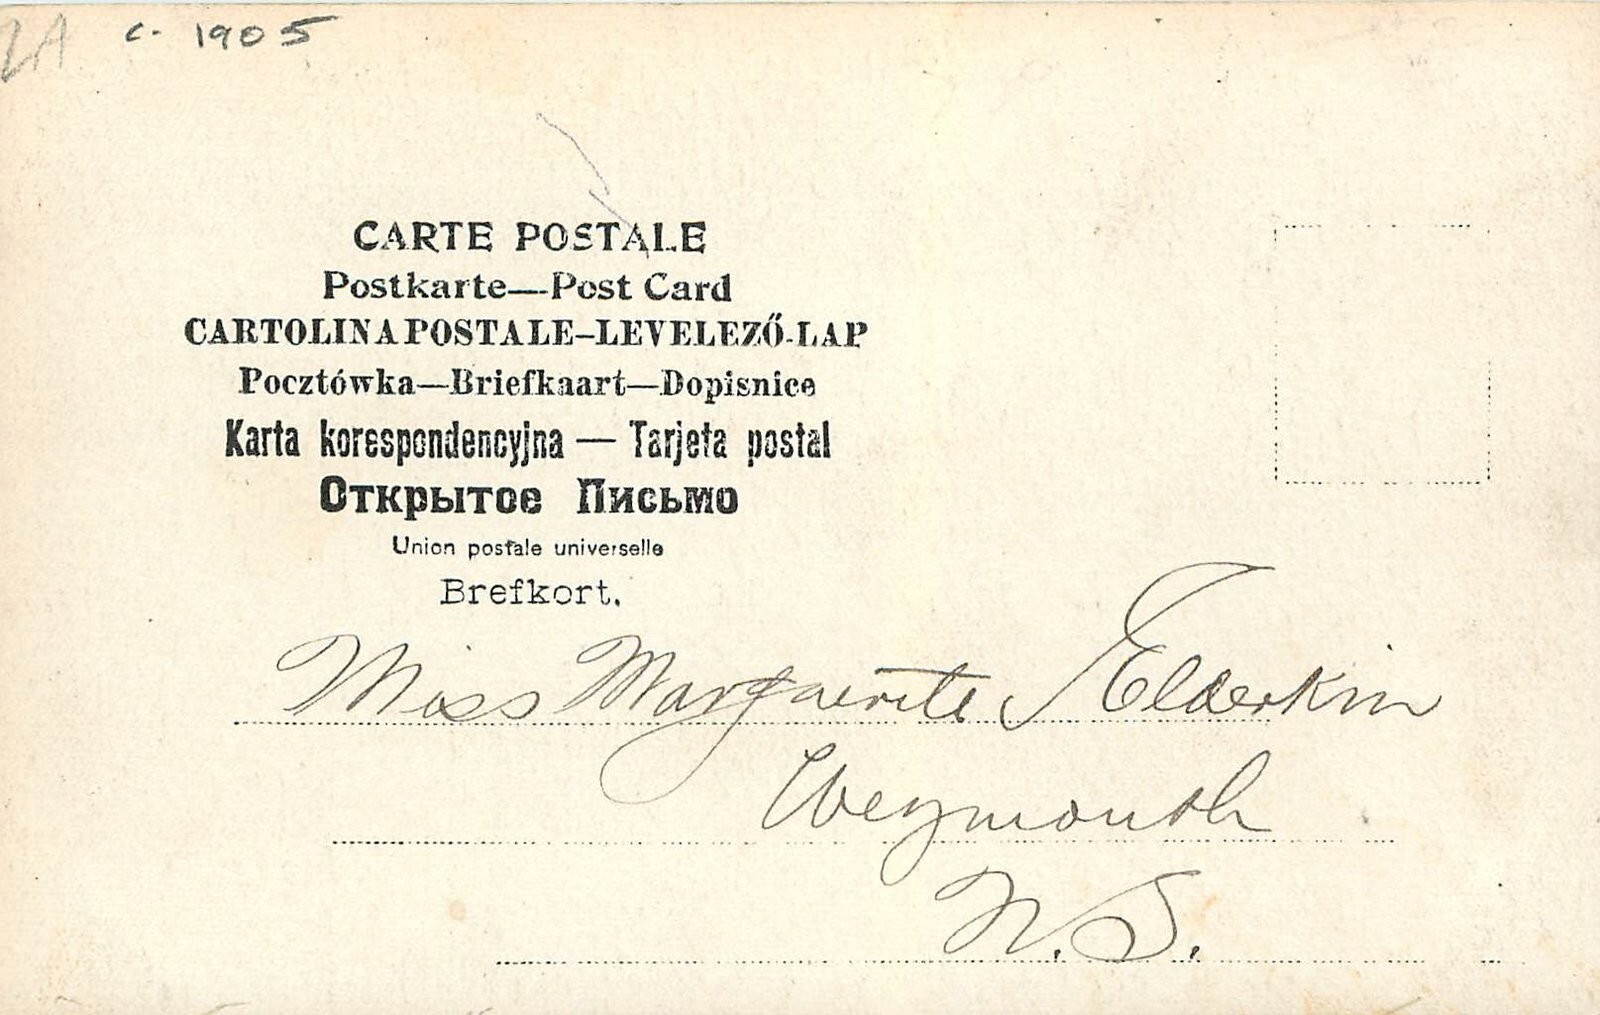 2A c. 1905
CARTE POSTALE
Postkarte—Post Card
CARTOLINA POSTALE–LEVELEZŐ-LAP
Pocztówka—Briefkaart—Dopisnice
Karta korespondencyjna — Tarjeta postal
Открытое Письмо
Union postale universelle
Brefkort.
Miss Marguerite Elderkin
Weymouth
N.S.